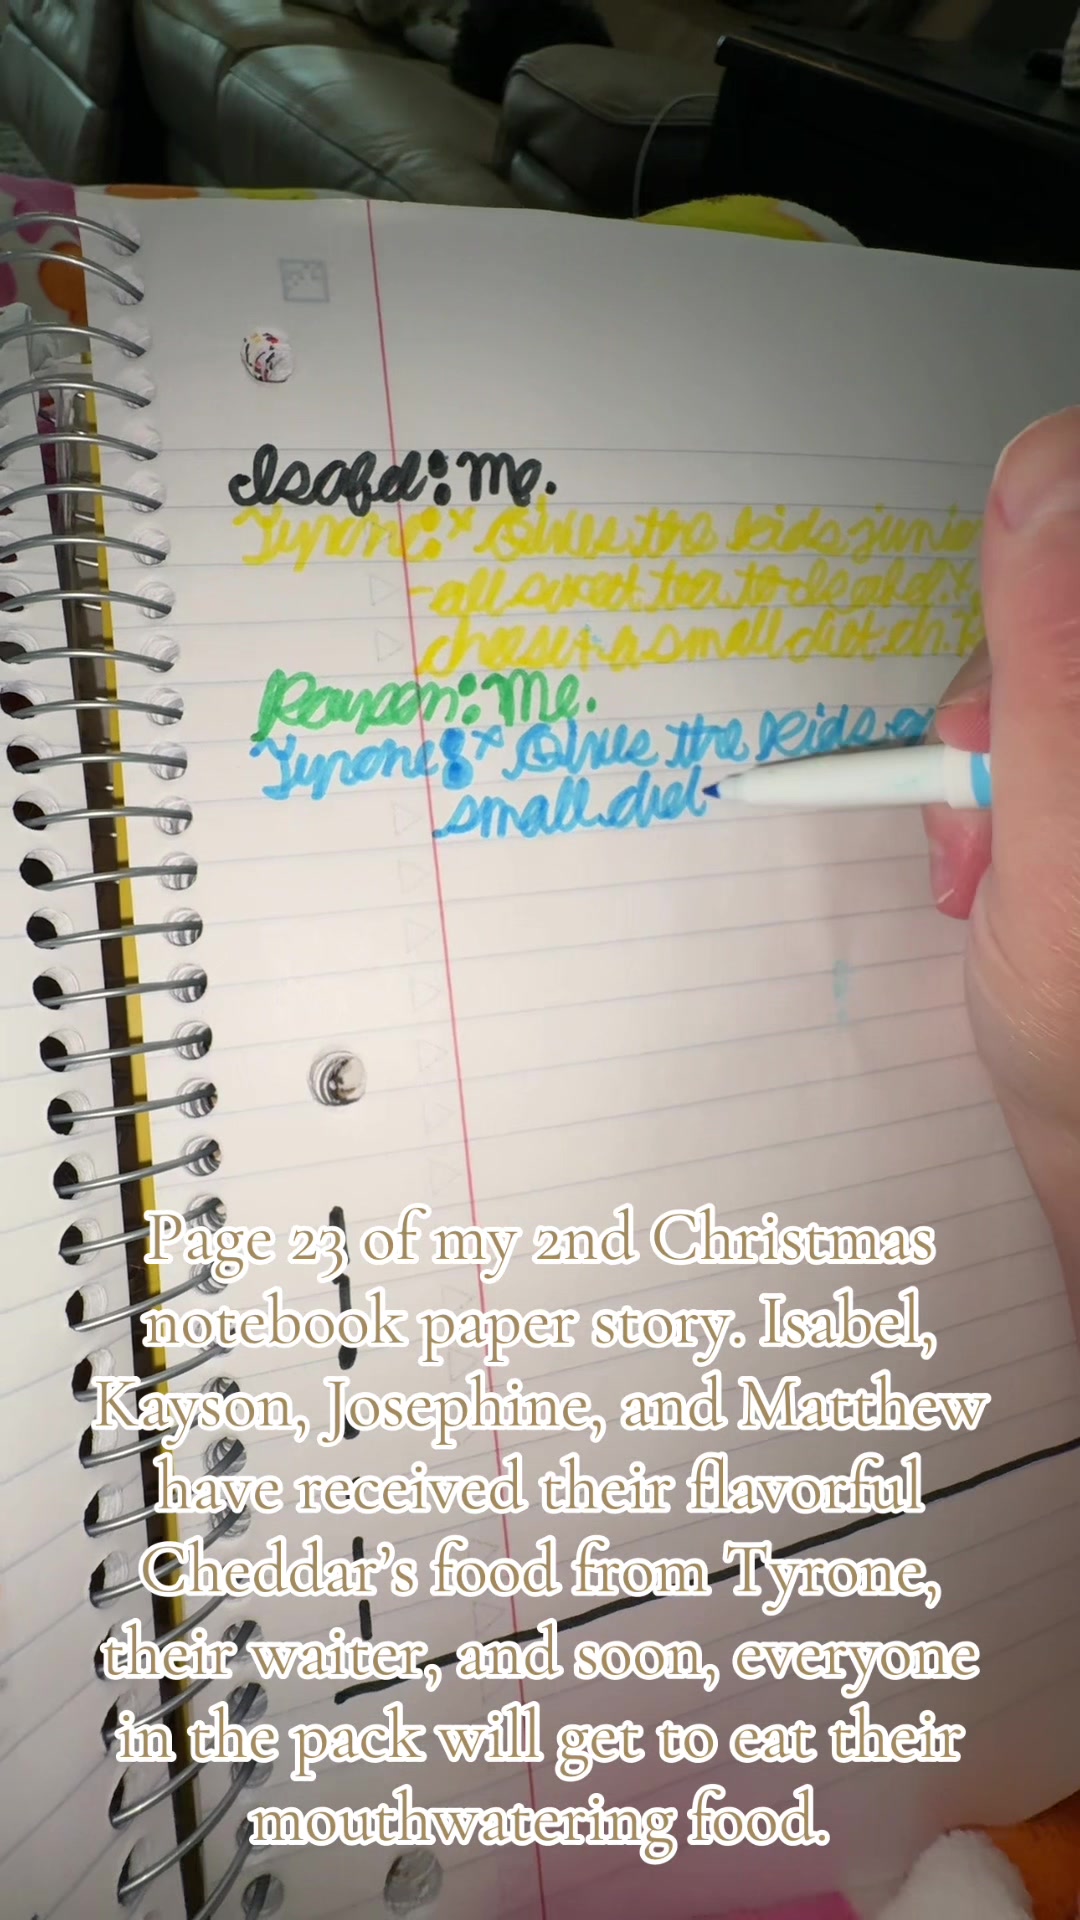 Isabel: Me.
Tyrone: * Gives the kids junio
-all sweet tea to Isabel.*
cheese + a small diet dr.
Kayson: Me.
Tyrone: * Gives the kids
small diet
Page 23 of my 2nd Christmas
notebook paper story. Isabel,
Kayson, Josephine, and Matthew
have received their flavorful
Cheddar’s food from Tyrone,
their waiter, and soon, everyone
in the pack will get to eat their
mouthwatering food.